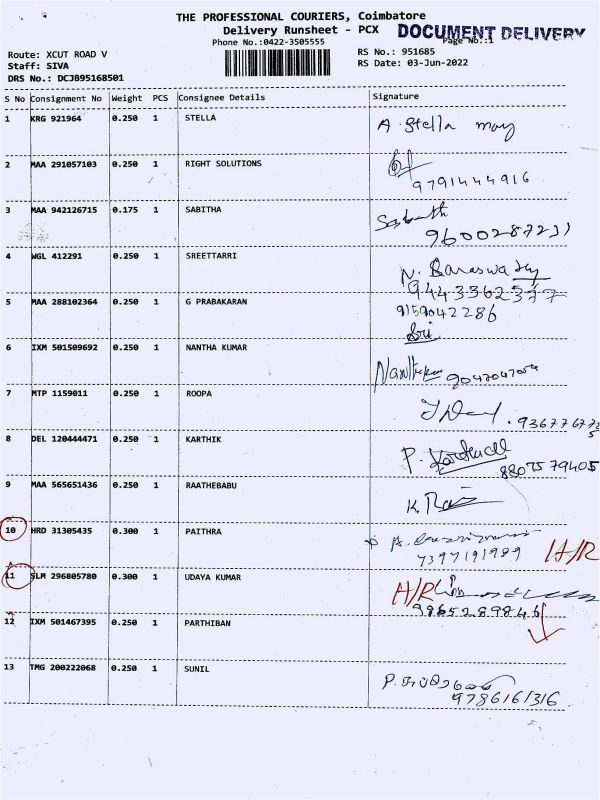 THE PROFESSIONAL COURIERS, Coimbatore
Delivery Runsheet - PCX
DOCUMENT DELIVERY
Phone No.:0422-3505555
Page No.:1
Route: XCUT ROAD V
RS No.: 951685
Staff: SIVA
RS Date: 03-Jun-2022
DRS No.: DCJB95168501
S No Consignment No Weight PCS Consignee Details Signature
1 KRG 921964 0.250 1 STELLA A. Stella may
2 MAA 291057103 0.250 1 RIGHT SOLUTIONS
9791444916
3 MAA 942126715 0.175 1 SABITHA
9600287211
4 WGL 412291 0.250 1 SREETTARRI
9443362577
5 MAA 288102364 0.250 1 G PRABAKARAN 9159042286
Sri
6 IXM 501509692 0.250 1 NANTHA KUMAR
9047047054
7 MTP 1159011 0.250 1 ROOPA
8 DEL 120444471 0.250 1 KARTHIK P. Karthick
8807579405
9 MAA 565651436 0.250 1 RAATHEBABU
10 HRD 31305435 0.300 1 PAITHRA
7397191989 H/R
11 SLM 296805780 0.300 1 UDAYA KUMAR H/R
9865289846
12 IXM 501467395 0.250 1 PARTHIBAN
13 TMG 200222068 0.250 1 SUNIL
9786161316